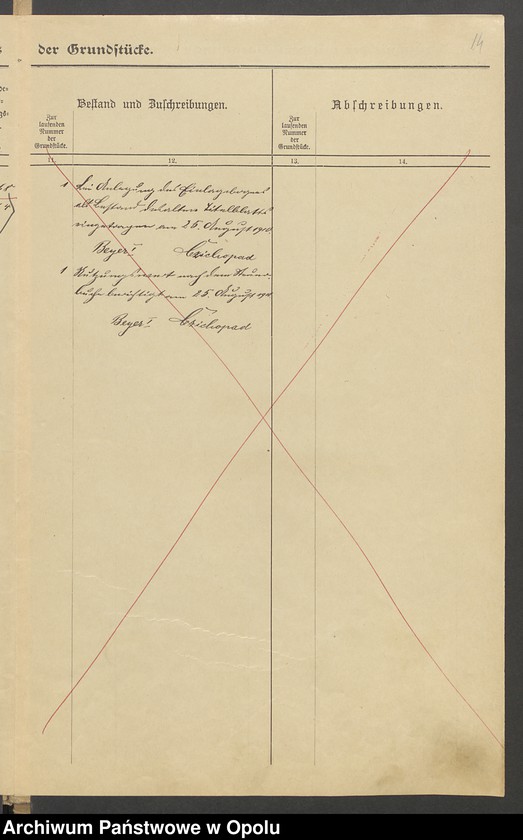 14
der Grundstücke.
Bestand und Zuschreibungen.
Abschreibungen.
Zur
laufenden
Nummer
der
Grundstücke.
Zur
laufenden
Nummer
der
Grundstücke.
11.
12.
13.
14.
1 Bei Anlegung des Einlagebogens
als Bestand des alten Titelblatts
eingetragen am 25. August 1910
Beyer I Czichopad
1 Nutzungswert nach dem Steuer-
buche berichtigt am 25. August 1910
Beyer I. Czichopad
Archiwum Państwowe w Opolu